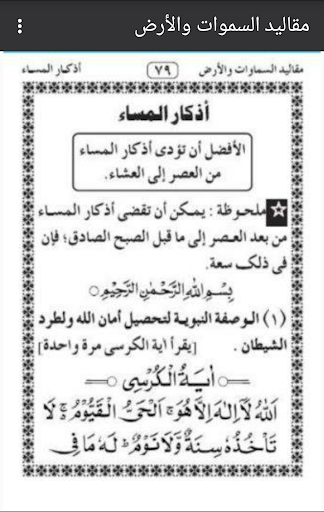 مقاليد السموات والأرض
مقاليد السماوات والأرض
٧٩
أذكار المساء
أذكار المساء
الأفضل أن تؤدى أذكار المساء
من العصر إلى العشاء.
ملحوظة : يمكن أن تقضى أذكار المساء
من بعد العصر إلى ما قبل الصبح الصادق؛ فإن
فى ذلك سعة.
بِسْمِ اللهِ الرَّحْمٰنِ الرَّحِيْمِ
(١) الوصفة النبوية لتحصيل أمان الله ولطرد
الشيطان . [يقرأ آية الكرسى مرة واحدة]
اٰيَةُ الْكُرْسِى
اَللهُ لَآ اِلٰهَ اِلَّا هُوَ ۚ اَلْحَىُّ الْقَيُّوْمُ ۚ لَا
تَأْخُذُهٗ سِنَةٌ وَّلَا نَوْمٌ ؕ لَهٗ مَا فِى